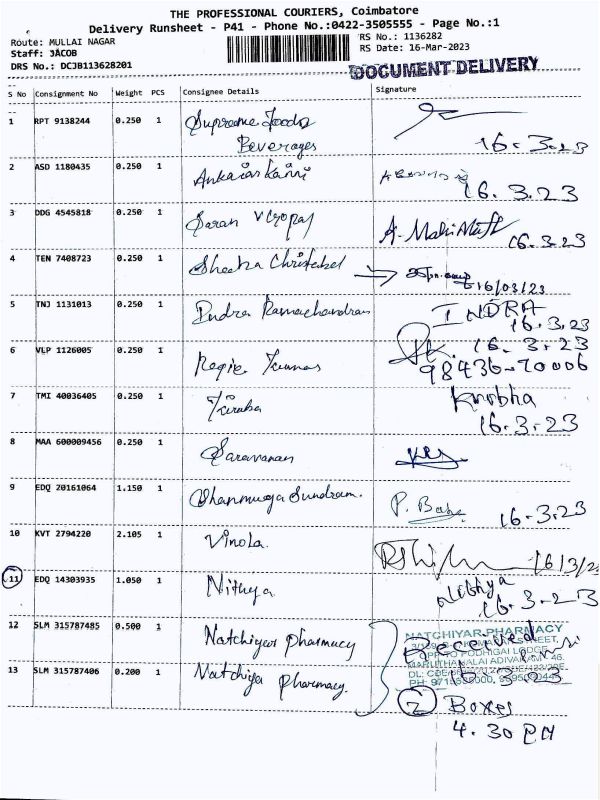 THE PROFESSIONAL COURIERS, Coimbatore
Delivery Runsheet - P41 - Phone No.:0422-3505555 - Page No.:1
Route: MULLAI NAGAR
RS No.: 1136282
Staff: JACOB
RS Date: 16-Mar-2023
DRS No.: DCJB113628201
DOCUMENT DELIVERY
S No Consignment No Weight PCS Consignee Details Signature
1 RPT 9138244 0.250 1 Supreme Foods
Beverages 16.3.23
2 ASD 1180435 0.250 1 16.3.23
3 DDG 4545818 0.250 1 Saran 16.3.23
4 TEN 7408723 0.250 1 Sheeba Christebel
16/03/23
5 TNJ 1131013 0.250 1 Indra Ramachandran INDRA
16.3.23
6 VLP 1126005 0.250 1 16.3.23
98436-70006
7 TMI 40036405 0.250 1
16.3.23
8 MAA 600009456 0.250 1 Saravanan
9 EDQ 20161064 1.150 1 Shanmuga Sundram. P. Babu 16.3.23
10 KVT 2794220 2.105 1 Vinola. 16/3/23
11 EDQ 14303935 1.050 1 Nithya Nithya
16.3.23
12 SLM 315787485 0.500 1 Natchiyar pharmacy
NATCHIYAR PHARMACY
Received
13 SLM 315787406 0.200 1 Natchiya pharmacy.
16.3.23
2 Boxes
4.30 PM